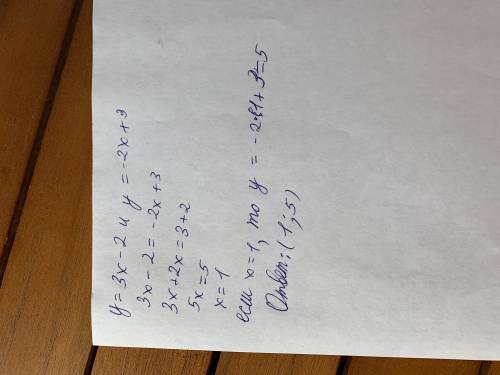 y = 3x - 2 и y = -2x + 3
3x - 2 = -2x + 3
3x + 2x = 3 + 2
5x = 5
x = 1
если x = 1, то y = -2·1 + 3 = 5
Ответ: (1; 5)